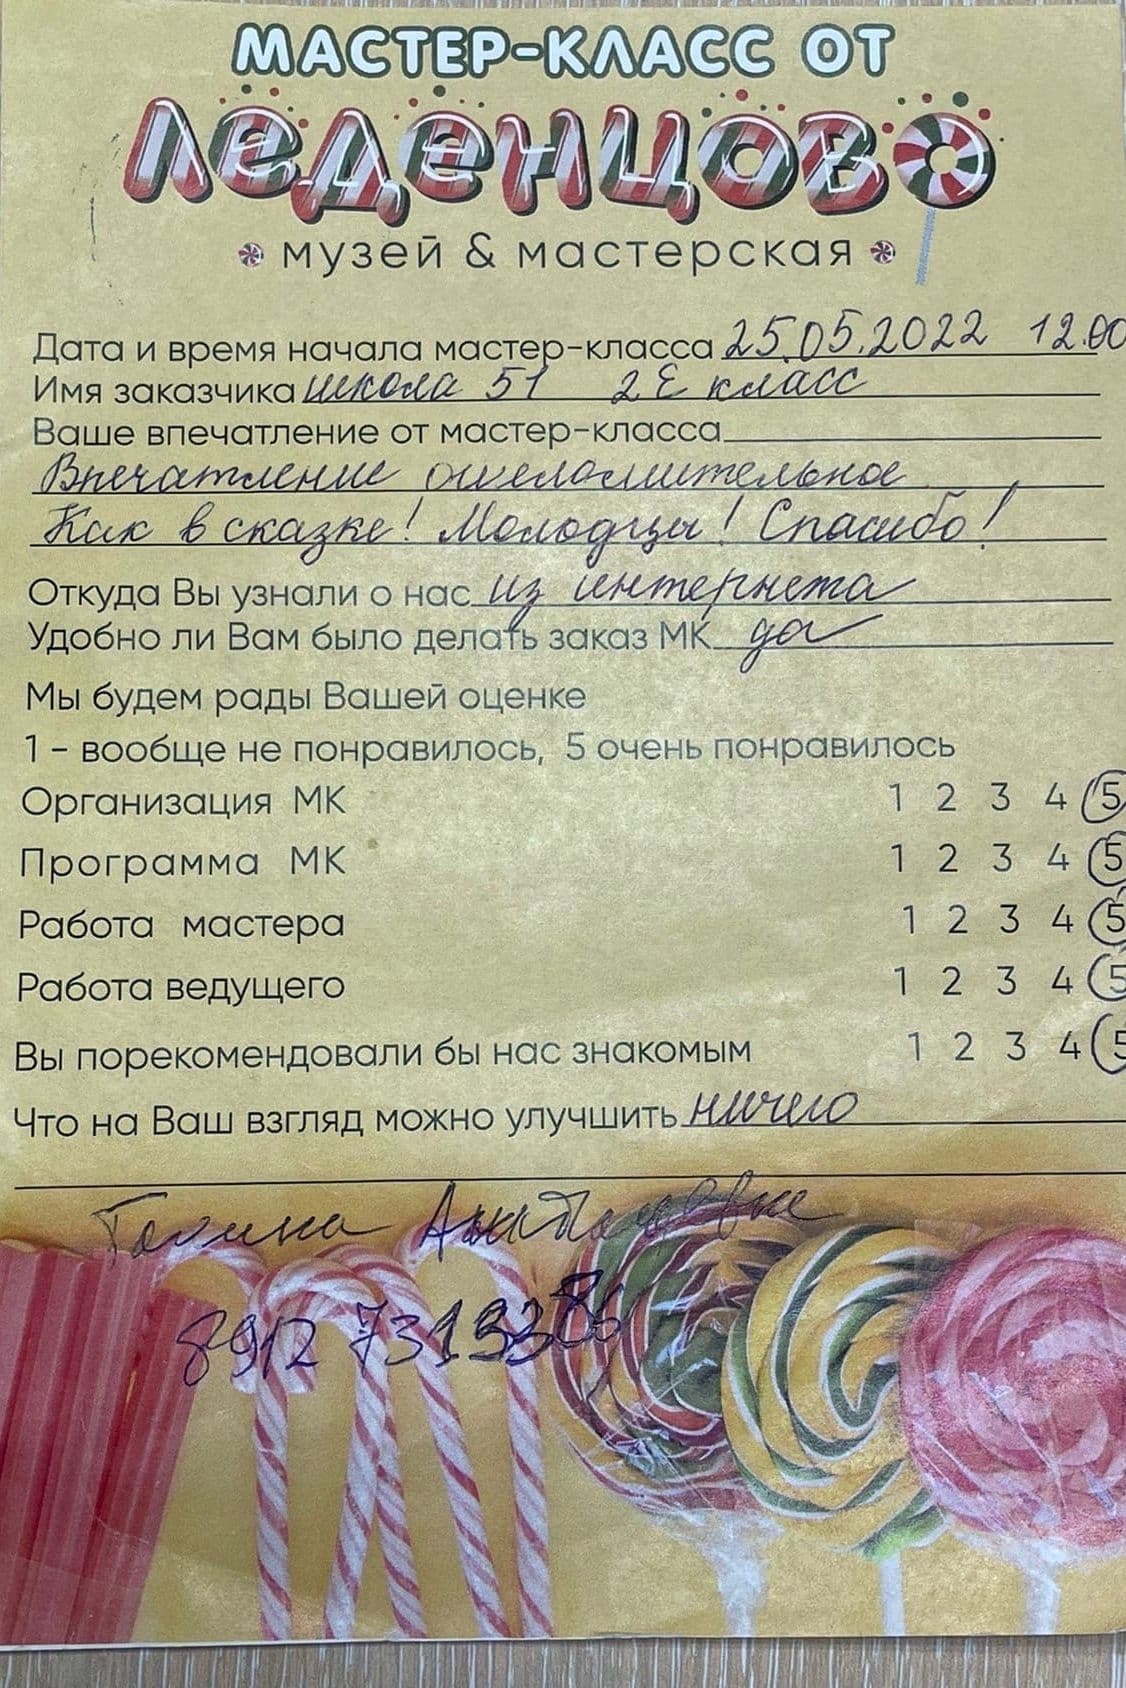 МАСТЕР-КЛАСС ОТ
Леденцово
музей & мастерская
Дата и время начала мастер-класса 25.05.2022 12.00
Имя заказчика школа 51 2Е класс
Ваше впечатление от мастер-класса
Впечатление ошеломительное
Как в сказке! Молодцы! Спасибо!
Откуда Вы узнали о нас из интернета
Удобно ли Вам было делать заказ МК да
Мы будем рады Вашей оценке
1 - вообще не понравилось, 5 очень понравилось
Организация МК 1 2 3 4 5
Программа МК 1 2 3 4 5
Работа мастера 1 2 3 4 5
Работа ведущего 1 2 3 4 5
Вы порекомендовали бы нас знакомым 1 2 3 4 5
Что на Ваш взгляд можно улучшить ничего
Галина
8912